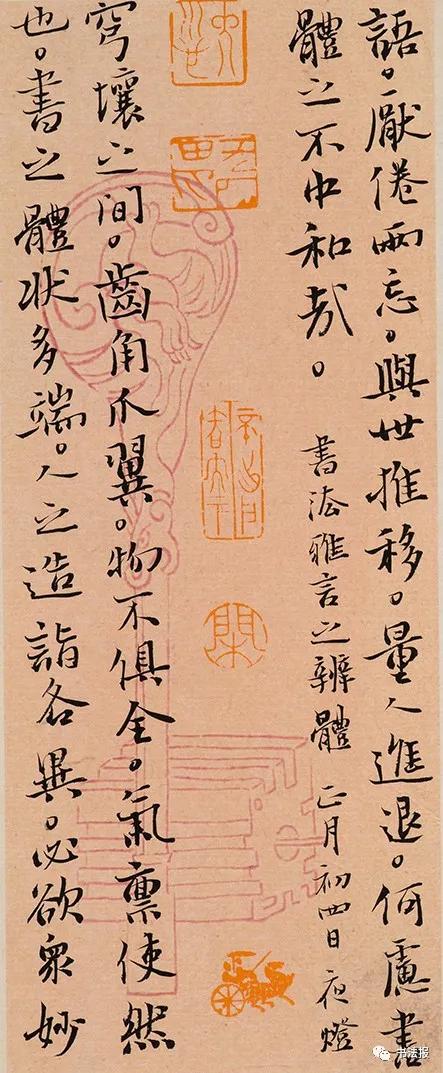 語。厭倦兩忘。與世推移。量人進退。何慮書
體之不中和哉。書法雅言之辨體 正月初四日夜燈
穹壤之间。齒角爪翼。物不俱全。氣稟使然
也。書之體状多端。人之造詣各異。必欲衆妙
书法报